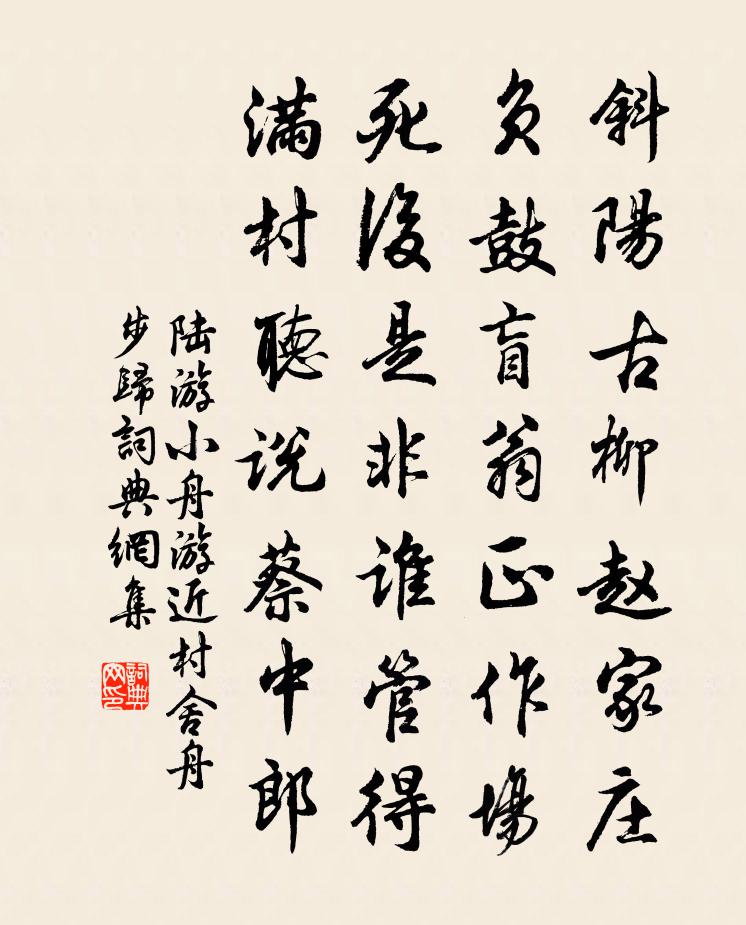 斜陽古柳赵家庄
负鼓盲翁正作場
死後是非谁管得
满村聽说蔡中郎
陆游小舟游近村舍舟
步歸詞典網集
詞典网印